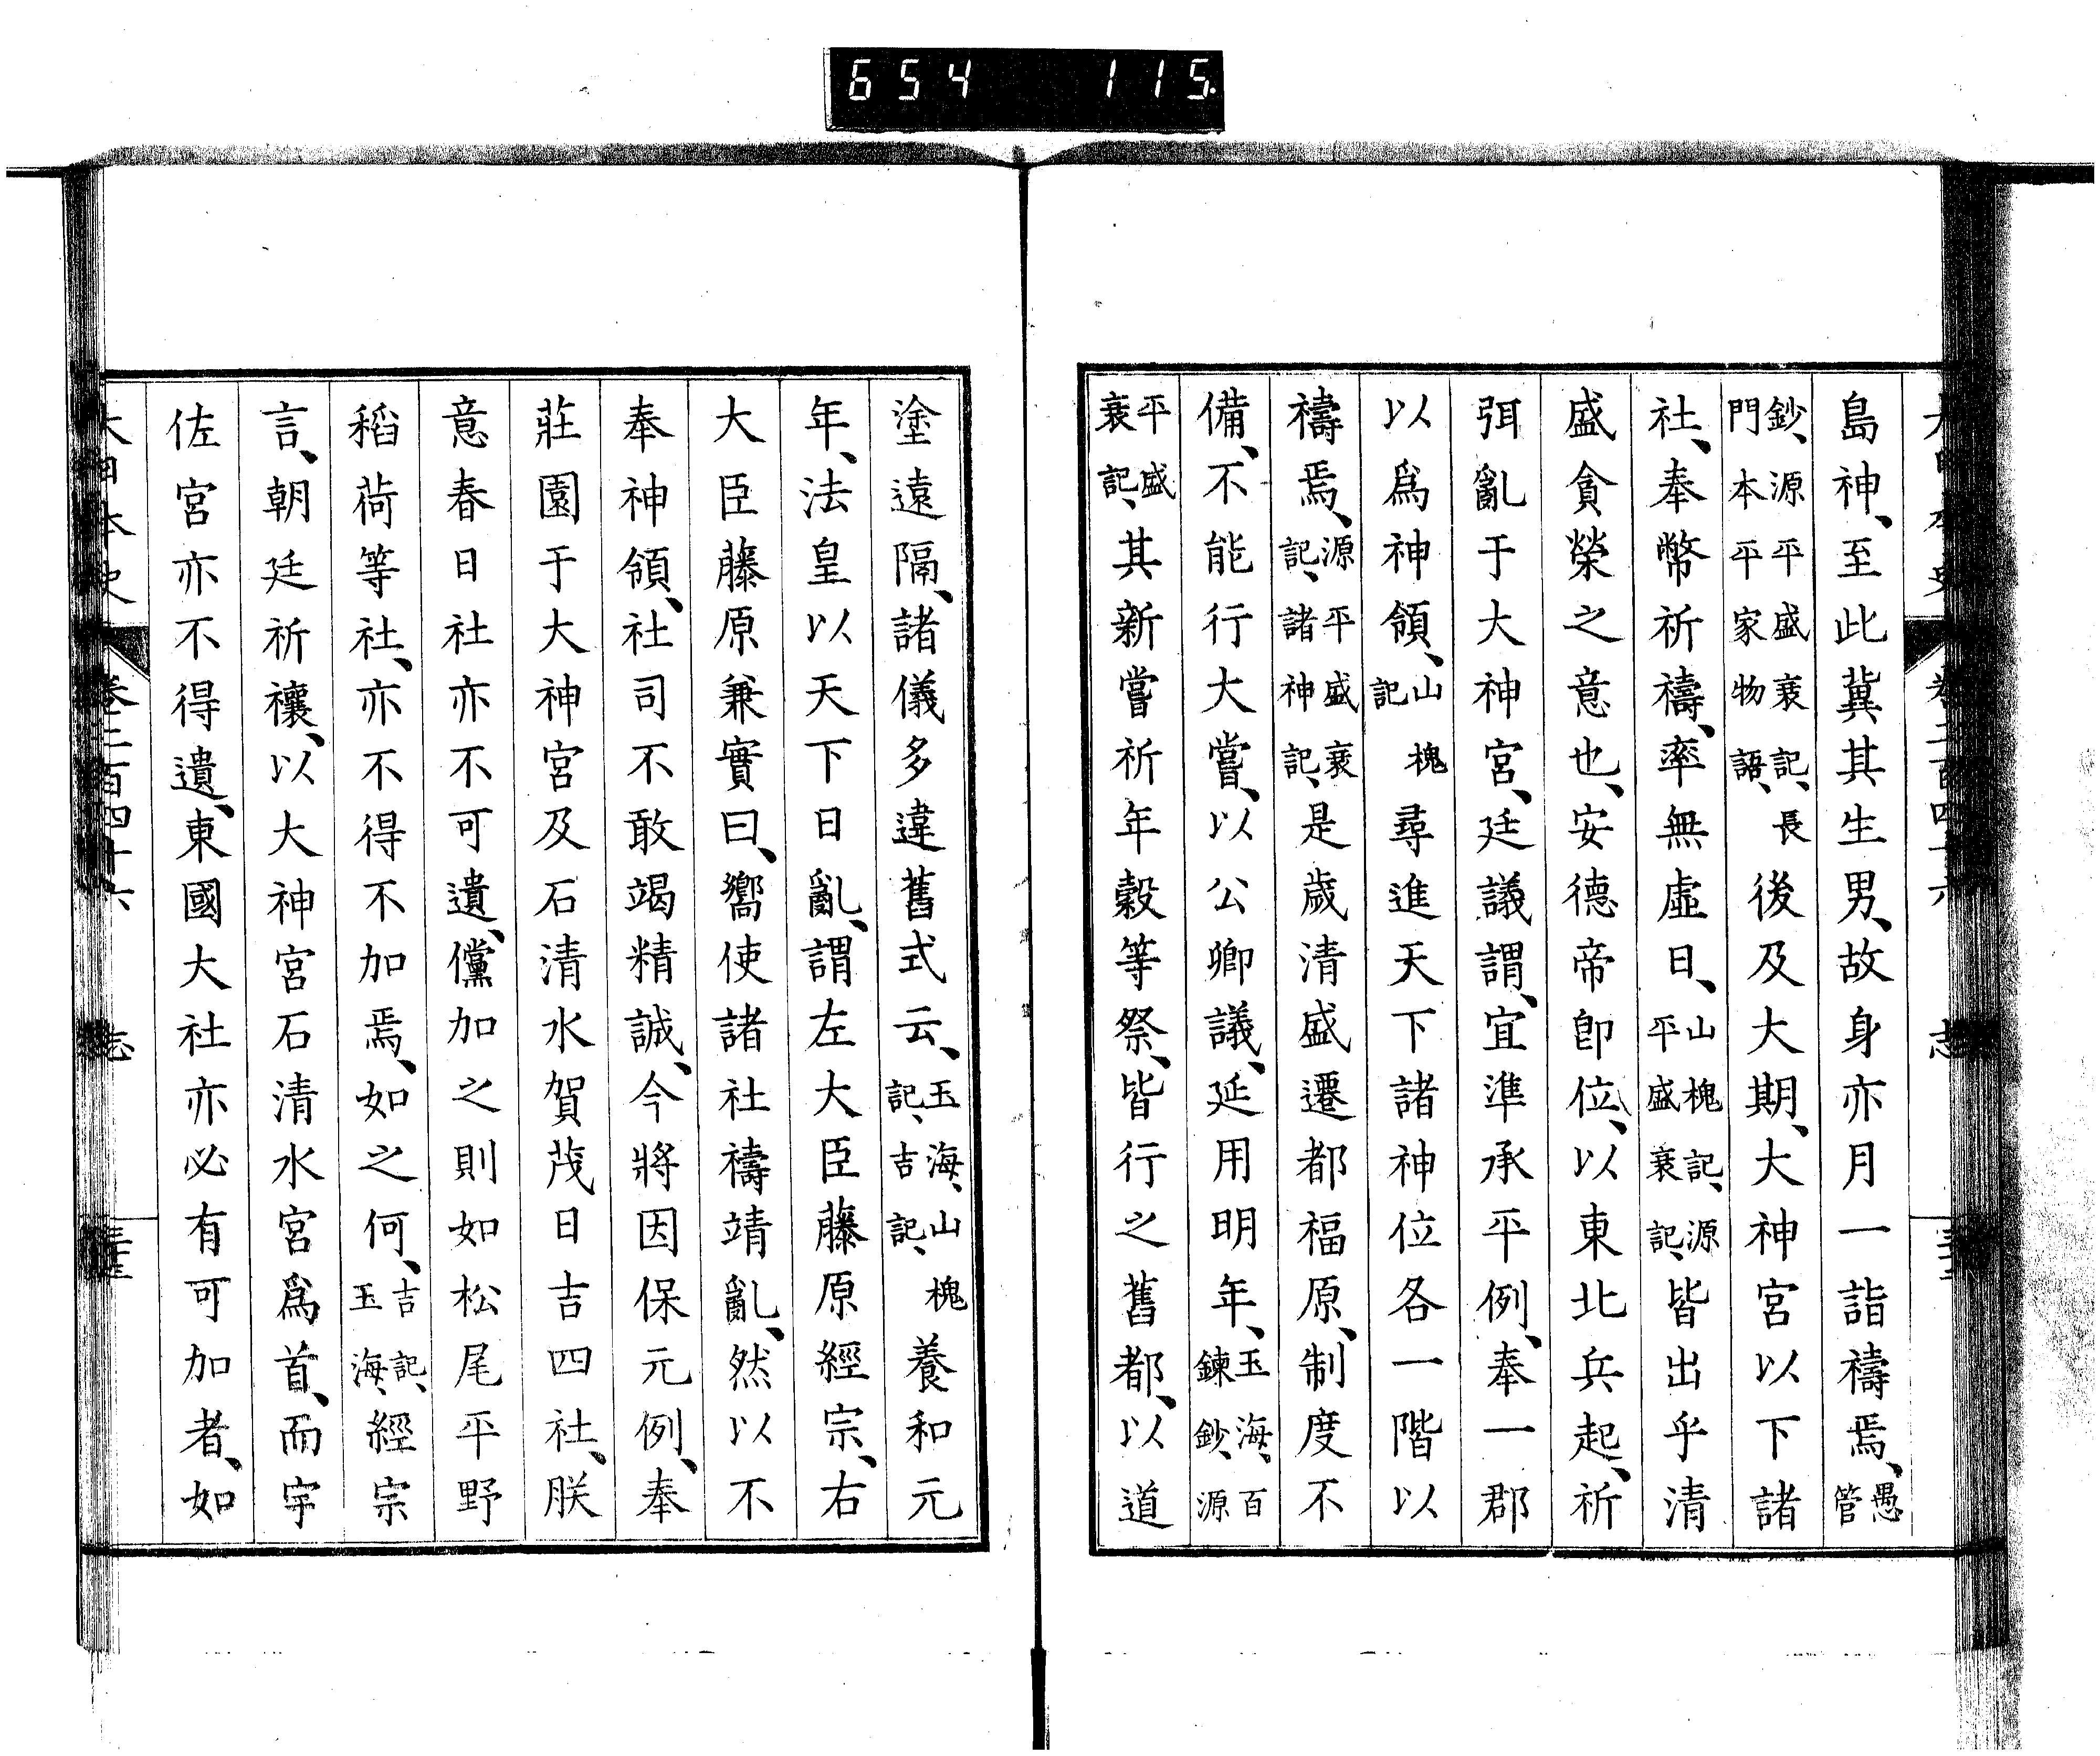 654 115.
島神、至此冀其生男、故身亦月一詣禱焉、愚管
鈔、源平盛衰記、長門本平家物語、後及大期、大神宮以下諸
社、奉幣祈禱、率無虛日、山槐記、源平盛衰記、皆出乎清
盛貪榮之意也、安德帝卽位、以東北兵起、祈
弭亂于大神宮、廷議謂、宜準承平例、奉一郡
以爲神領、山槐記尋進天下諸神位各一階以
禱焉、源平盛衰記、諸神記、是歲清盛遷都福原、制度不
備、不能行大嘗、以公卿議、延用明年、玉海、百鍊鈔、源
平盛衰記、其新嘗祈年穀等祭、皆行之舊都、以道
塗遠隔、諸儀多違舊式云、玉海、山槐記、吉記、養和元
年、法皇以天下日亂、謂左大臣藤原經宗、右
大臣藤原兼實曰、嚮使諸社禱靖亂、然以不
奉神領、社司不敢竭精誠、今將因保元例、奉
莊園于大神宮及石清水賀茂日吉四社、朕
意春日社亦不可遺、儻加之則如松尾平野
稻荷等社、亦不得不加焉、如之何、吉記、玉海、經宗
言、朝廷祈禳、以大神宮石清水宮爲首、而宇
佐宮亦不得遺、東國大社亦必有可加者、如
大日本史 卷二百四十六 志